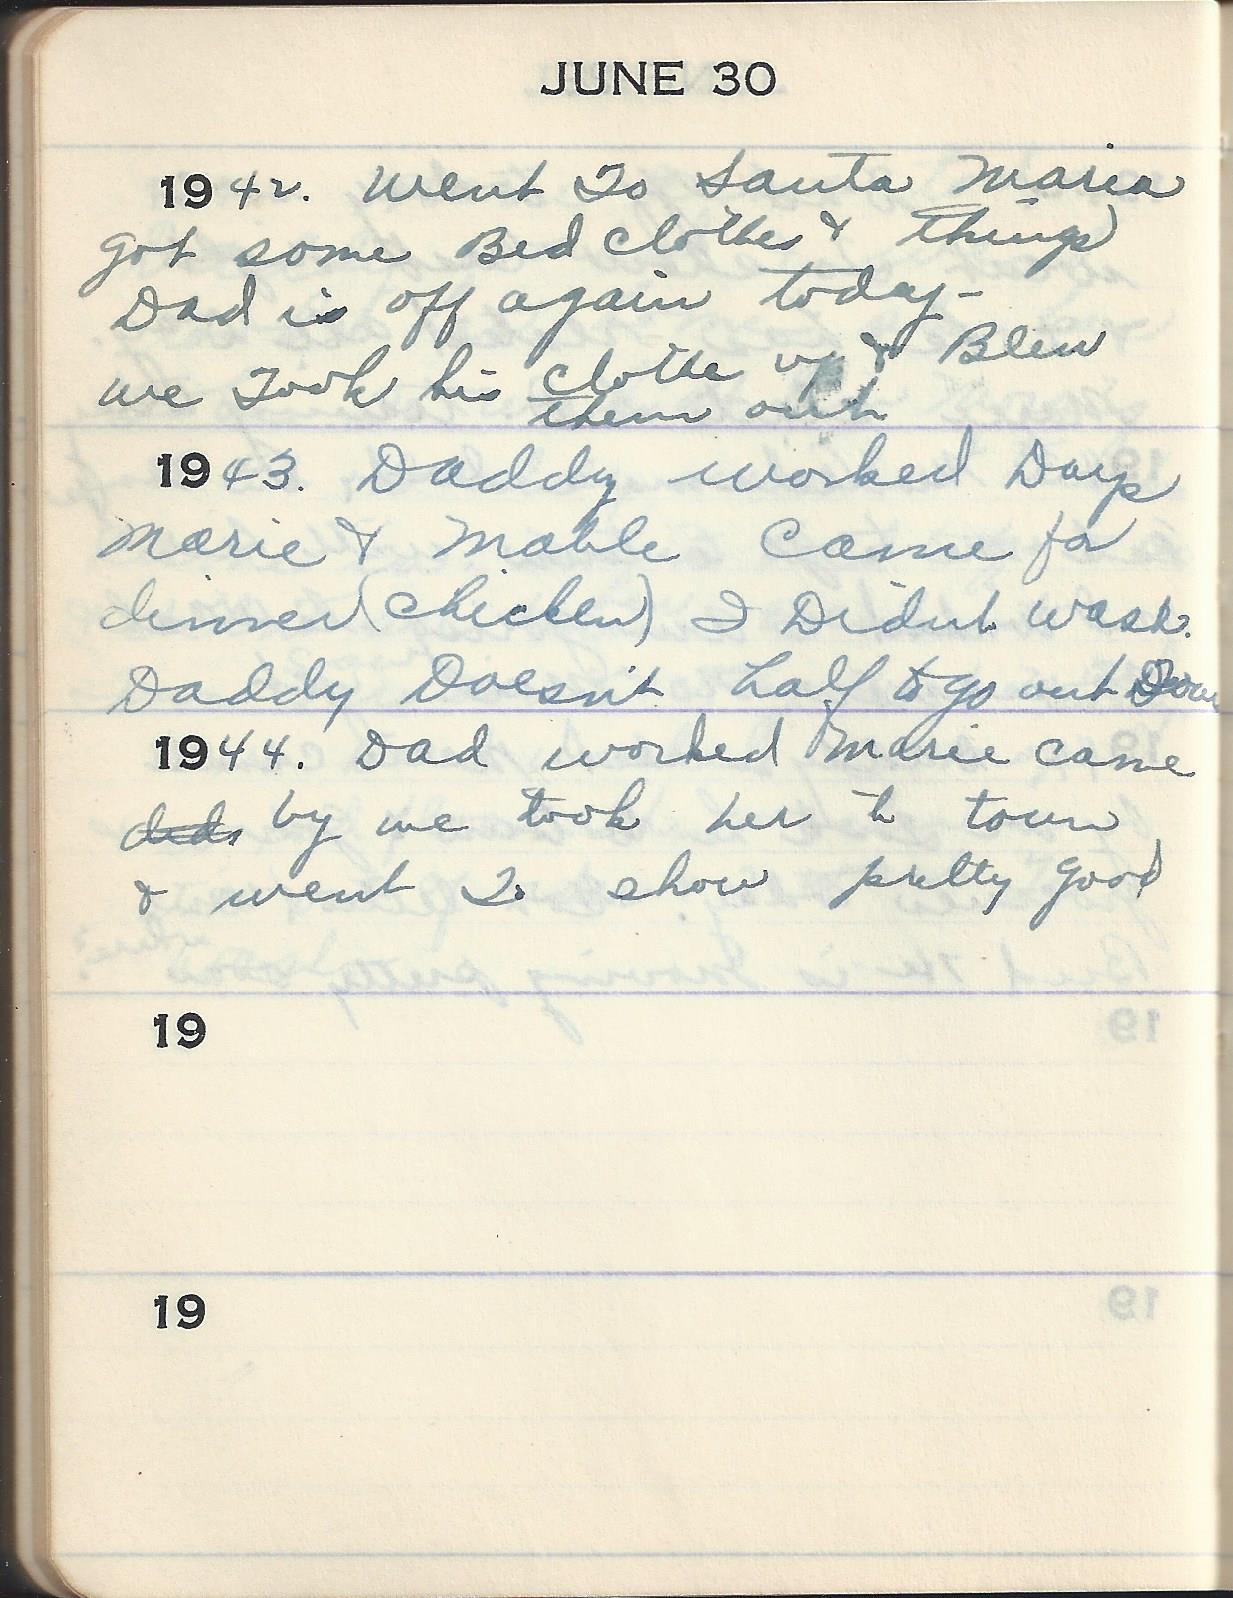 JUNE 30
1942. Went To Santa Maria
got some Bed clothes & things
Dad is off again today-
we Took his clothe up & Blew
them out
1943. Daddy worked Days
Marie & Mable came for
dinner (chicken) I Didnt wash.
Daddy Doesn't half to go out
1944. Dad worked Marie came
by we took her to town
& went To show pretty good
19
19